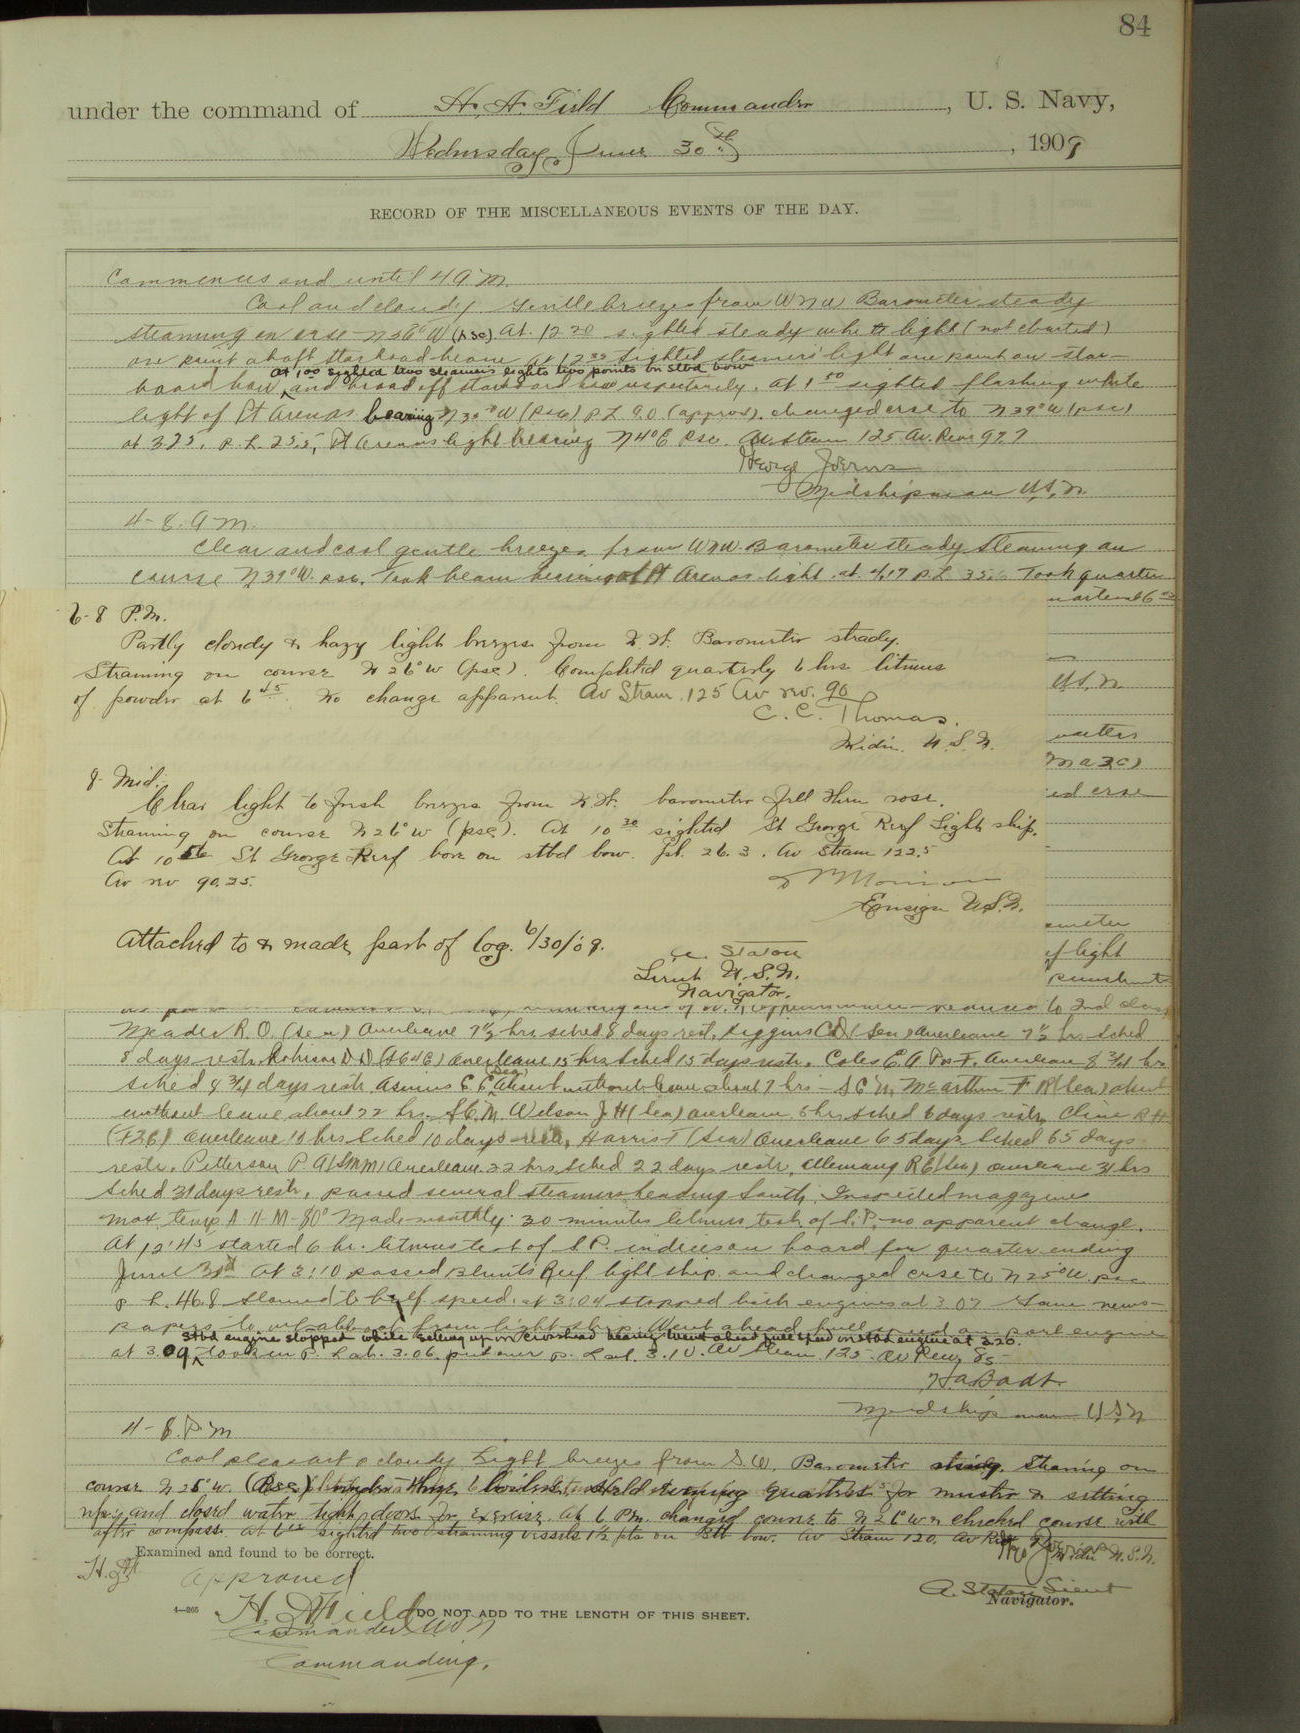 84
under the command of H. A. Field Commander, U. S. Navy,
Wednesday June 30th, 1909
RECORD OF THE MISCELLANEOUS EVENTS OF THE DAY.
Commences and until 4 A M.
Cool and cloudy Gentle breezes from WNW Barometer steady
steaming on crse N39°W (psc). At 12 20 sighted steady white light (not charted)
one point abaft starboard beam at 12 35 sighted steamers' light one point on star-
at 1 00 sighted two steamers lights two points on stbd bow
board bow, and broad off starboard bow respectively. At 1 50 sighted flashing white
light of Pt Arenas bearing N30°W (psc) P.L. 9.0 (approx). changed crse to N39°W (psc)
at 3.25. P.L. 25.5, Pt Arenas light bearing N4°E psc. Av. steam 125 Av. Revs 97.7
George
Midshipman U.S.N.
4-8. A M.
Clear and cool gentle breezes from WNW. Barometer steady Steaming on
course N39°W. psc. Took beam bearing of Pt Arenas light at 4.17 P L 35. Took quarter
6-8 P.M.
Partly cloudy & hazy light breezes from N.W. Barometer steady.
Steaming on course N 26° W (psc). Completed quarterly 6 hrs litmus
of powder at 6 45. No change apparent. Av Steam. 125 Av rev. 90
C. C. Thomas.
Midn. U.S.N.
8- Mid.
Clear light to fresh breezes from N.W. barometer fell then rose.
Steaming on course N 26° W (psc). At 10 30 sighted St George Reef Light ship.
At 10 56 St George Reef bore on stbd bow. P.L. 26.3. Av steam 122.5
Av rev 90.25.
Ensign U.S.N.
Attached to & made part of log. 6/30/09.
A. Staton
Lieut U.S.N.
Navigator.
U.S.N
crse
light
reduced to 2nd class
Meader R.O. (Sea) Overleave 7½ hrs. sched 8 days rest. Higgins C D (Sea) overleave 7½ hrs sched
8 days restr. Robison D D overleave 15 hrs Sched 15 days restr. Coles E A overleave 8 3/4 hrs
sched 8 3/4 days restr. E. E. (Sea) Absent without leave about 7 hrs - S C M, McArthur F R (Sea) absent
without leave about 22 hrs. S.C.M. Wilson J H (Sea) overleave 6 hrs sched 6 days restr. Cline R H
(F2C) overleave 10 hrs Sched 10 days restr, Harris T (Sea) Overleave 65 days Sched 65 days
restr. Petterson P A (SMM) Overleave 22 hrs sched 22 days restr. Allemang R E (Sea) overleave 31 hrs
Sched 31 days restr, passed several steamers heading South. Inspected magazines
max. temp A H M-80° Made monthly 30 minutes litmus test of S.P. no apparent change.
At 12:45 started 6 hr. litmus test of S P. indices on board for quarter ending
June 30th At 3:10 passed Blunts Reef light ship and changed crse to N25°W. psc
P. L. 46.8 Slowed to half speed at 3:04 stopped both engines at 3.07 Gave news-
papers to whaleboat from light ship. Went ahead full speed on port engine
Stbd engine stopped while setting up on crosshead bearing Went ahead full speed on stbd engine at 3.20.
at 3.09 took in P. L. at 3.06. put over P. L. at 3.10. Av Steam 125. Av Rev 85-
H. A. Badt
Midshipman U.S.N
4-8. P M
Cool pleasant & cloudy Light breezes from S.W. Barometer steady. Steaming on
course N 25° W. (Psc) under three boilers. Held evening quarters for muster & setting
up and closed water tight doors for exercise. At 6 P.M. changed course to N 26° W & checked course with
after compass. At 6 sighted two steaming vessels 1½ pts on Stb bow. Av Steam 120. Av Rev
Midn U.S.N.
Examined and found to be correct.
Approved
A. Staton Lieut
Navigator.
4—265
H. A. Field
DO NOT ADD TO THE LENGTH OF THIS SHEET.
Commander USN
Commanding.